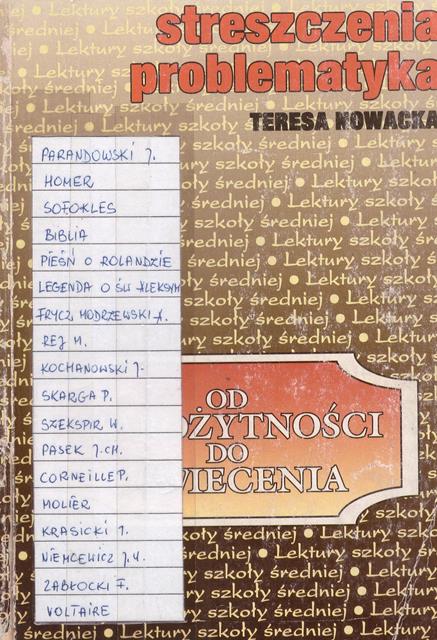 streszczenia
problematyka
TERESA NOWACKA
PARANDOWSKI J.
HOMER
SOFOKLES
BIBLIA
PIEŚŃ O ROLANDZIE
LEGENDA O ŚW ALEKSYM
FRYCZ MODRZEWSKI A.
REJ M.
KOCHANOWSKI J.
SKARGA P.
SZEKSPIR W.
PASEK J.CH.
CORNEILLE P.
MOLIER
KRASICKI I.
NIEMCEWICZ J.U.
ZABŁOCKI F.
VOLTAIRE
OD
OŻYTNOŚCI
DO
WIECENIA
Lektury szkoły średniej